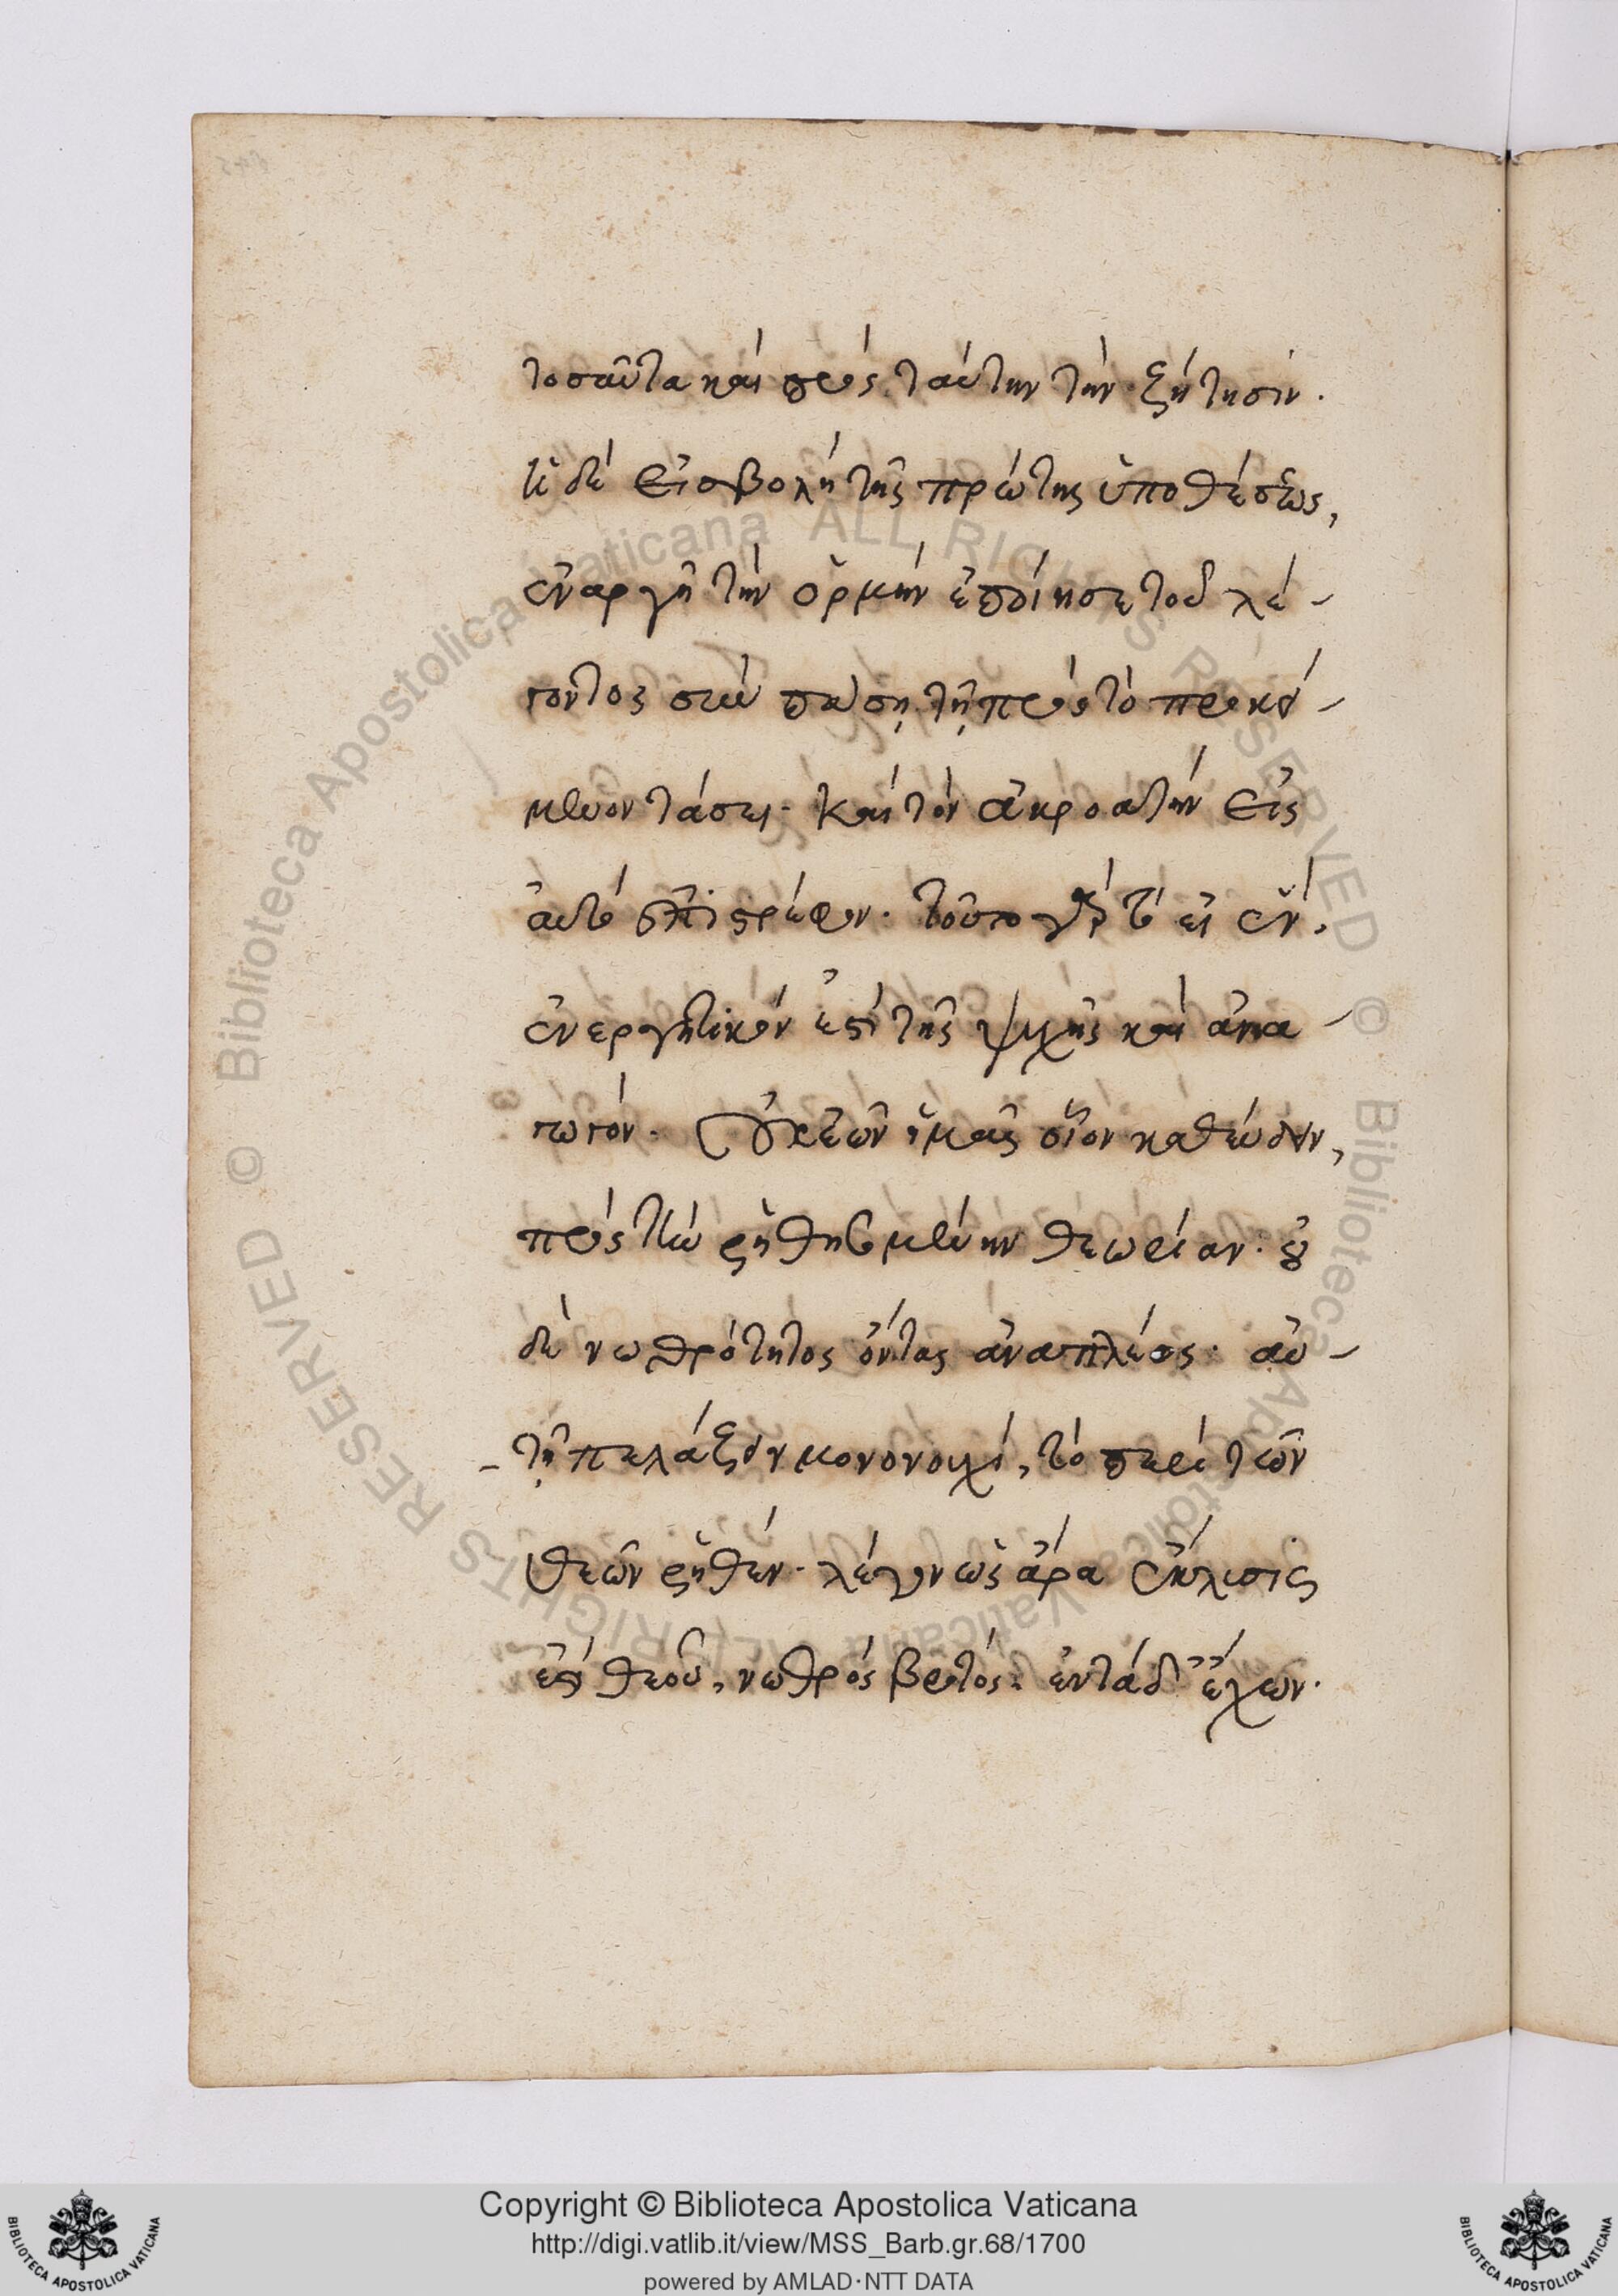 τοσαῦτα καὶ πρὸς ταύτην τὴν ζήτησιν.
ἡ δὲ εἰσβολὴ τῆς πρώτης ὑποθέσεως,
ἐναργῆ τὴν ὁρμὴν ἐποίησε τοῦ λέ-
γοντος σὺν πάσῃ τῇ πρὸς τὸ προκεί-
μενον τάσει. καὶ τὸν ἀκροατὴν εἰς
αὐτὸ ἐπιστρέφει. τοῦτο γὰρ τὸ εἰ ἕν.
ἐνεργητικὸν ἐπὶ τῆς ψυχῆς καὶ ἀνα-
γωγόν. οὐκ ἐῶν ἡμᾶς οἷον καθεύδειν,
πρὸς τὴν ῥηθησομένην θεωρίαν. οὐ
δὲ νωθρότητος ὄντας ἀναπλέους. αὐ-
τῇ πελάζειν μονονουχί, τὸ περὶ τῶν
θεῶν ῥηθέν. λέγων ὡς ἄρα ἔκλισις
ἐς θεοῦ, νωθρὸς βροτός. ἐς τάδ' ἔχων.
Copyright © Biblioteca Apostolica Vaticana
http://digi.vatlib.it/view/MSS_Barb.gr.68/1700
powered by AMLAD·NTT DATA
BIBLIOTECA APOSTOLICA VATICANA
BIBLIOTECA APOSTOLICA VATICANA
© Biblioteca Apostolica Vaticana ALL RIGHTS RESERVED
© Biblioteca Apostolica Vaticana ALL RIGHTS RESERVED